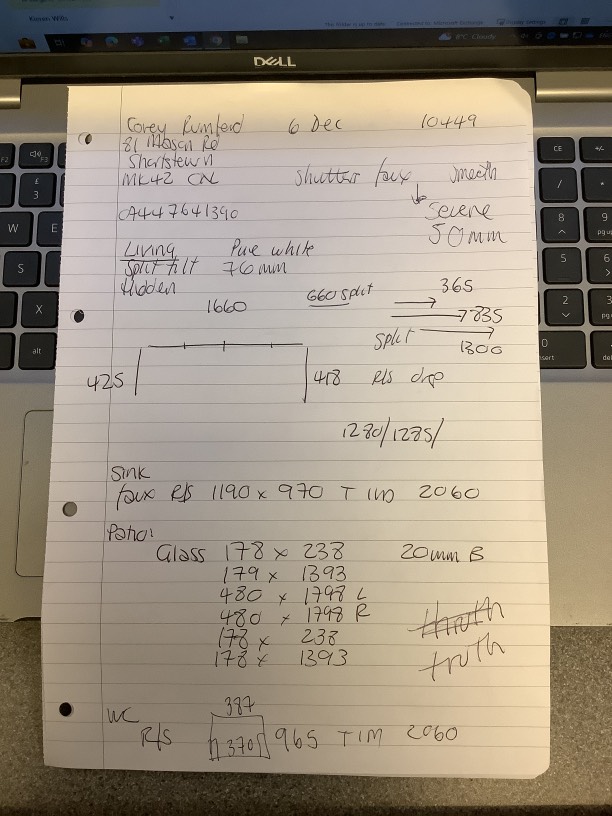 DELL
Corey Rumferd 6 Dec 10449
81 Mason Rd
Shortstown
MK42 shutters faux smooth
CA447641390 Serene
50mm
Living Pure white
Split tilt 76mm
Hidden
1660 660 split 365
835
split 1300
425 418 R/s drop
1280/1285/
Sink
faux R/s 1190 x 970 T 2060
Patio
Glass 178 x 238 20mm B
179 x 1393
480 x 1798 L
480 x 1798 R
178 x 238
178 x 1393
truth
WC 387
R/s 370 965 T 2060